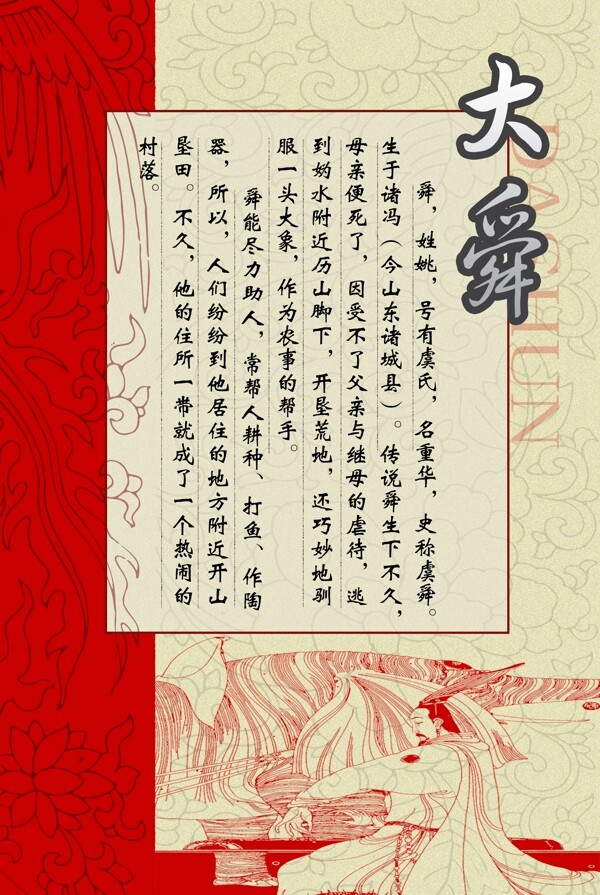 大舜
DASHUN
舜，姓姚，号有虞氏，名重华，史称虞舜。
生于诸冯（今山东诸城县）。传说舜生下不久，
母亲便死了，因受不了父亲与继母的虐待，逃
到妫水附近历山脚下，开垦荒地，还巧妙地驯
服一头大象，作为农事的帮手。
舜能尽力助人，常帮人耕种、打鱼、作陶
器，所以，人们纷纷到他居住的地方附近开山
垦田。不久，他的住所一带就成了一个热闹的
村落。